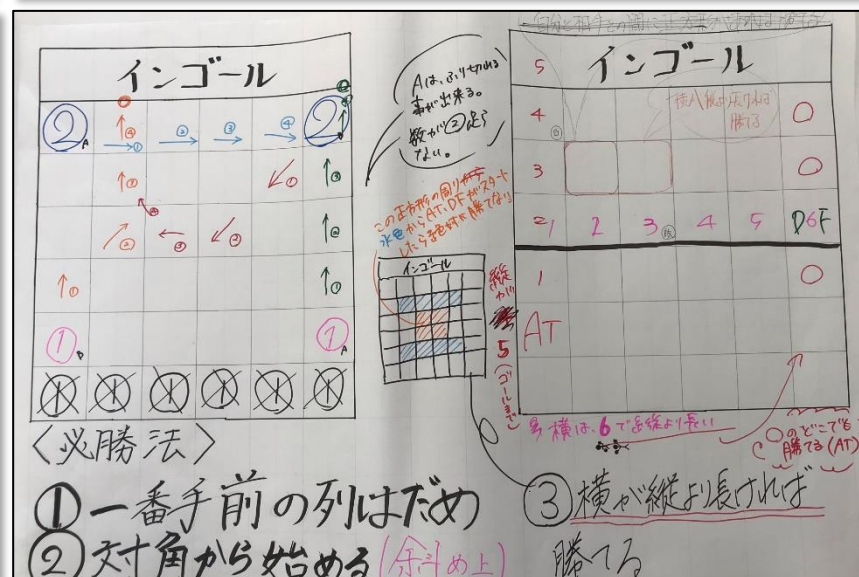 インゴール
Aは、ふり切れる
事が出来る。
数が②足ら
ない。
この正方形の周り
水色からAT、DFがスタート
したら絶対に勝てない
インゴール
縦が
5
(ゴールまで)
インゴール
5
4
3
2
1
横が縦より長ければ
勝てる
1 2 3 4 5 6
DF
AT
横は、6で縦より長い
○のどこでも
勝てる(AT)
<必勝法>
①一番手前の列はだめ
②対角から始める(斜め上)
③横が縦より長ければ
勝てる